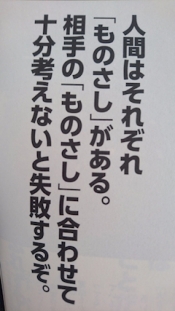 人間はそれぞれ
「ものさし」がある。
相手の「ものさし」に合わせて
十分考えないと失敗するぞ。